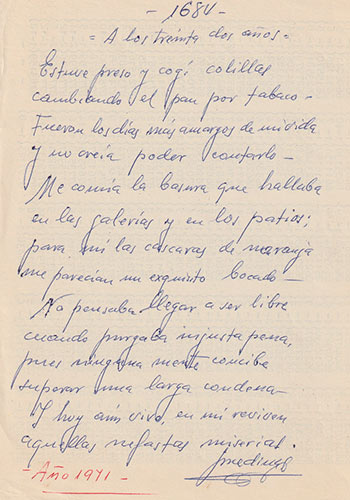 - 1684 -
= A los treinta dos años =
Estuve preso y cogí colillas
cambiando el pan por tabaco -
Fueron los días más amargos de mi vida
y no creía poder contarlo -
Me comía la basura que hallaba
en las galerías y en los patios;
para mí las cascaras de naranja
me parecían un exquisito bocado -
No pensaba llegar a ser libre
cuando purgaba injusta pena,
pues ninguna mente concibe
superar una larga condena -
Y hoy aún vivo, en mi reviven
aquellas nefastas miserias.
- Año 1971 -